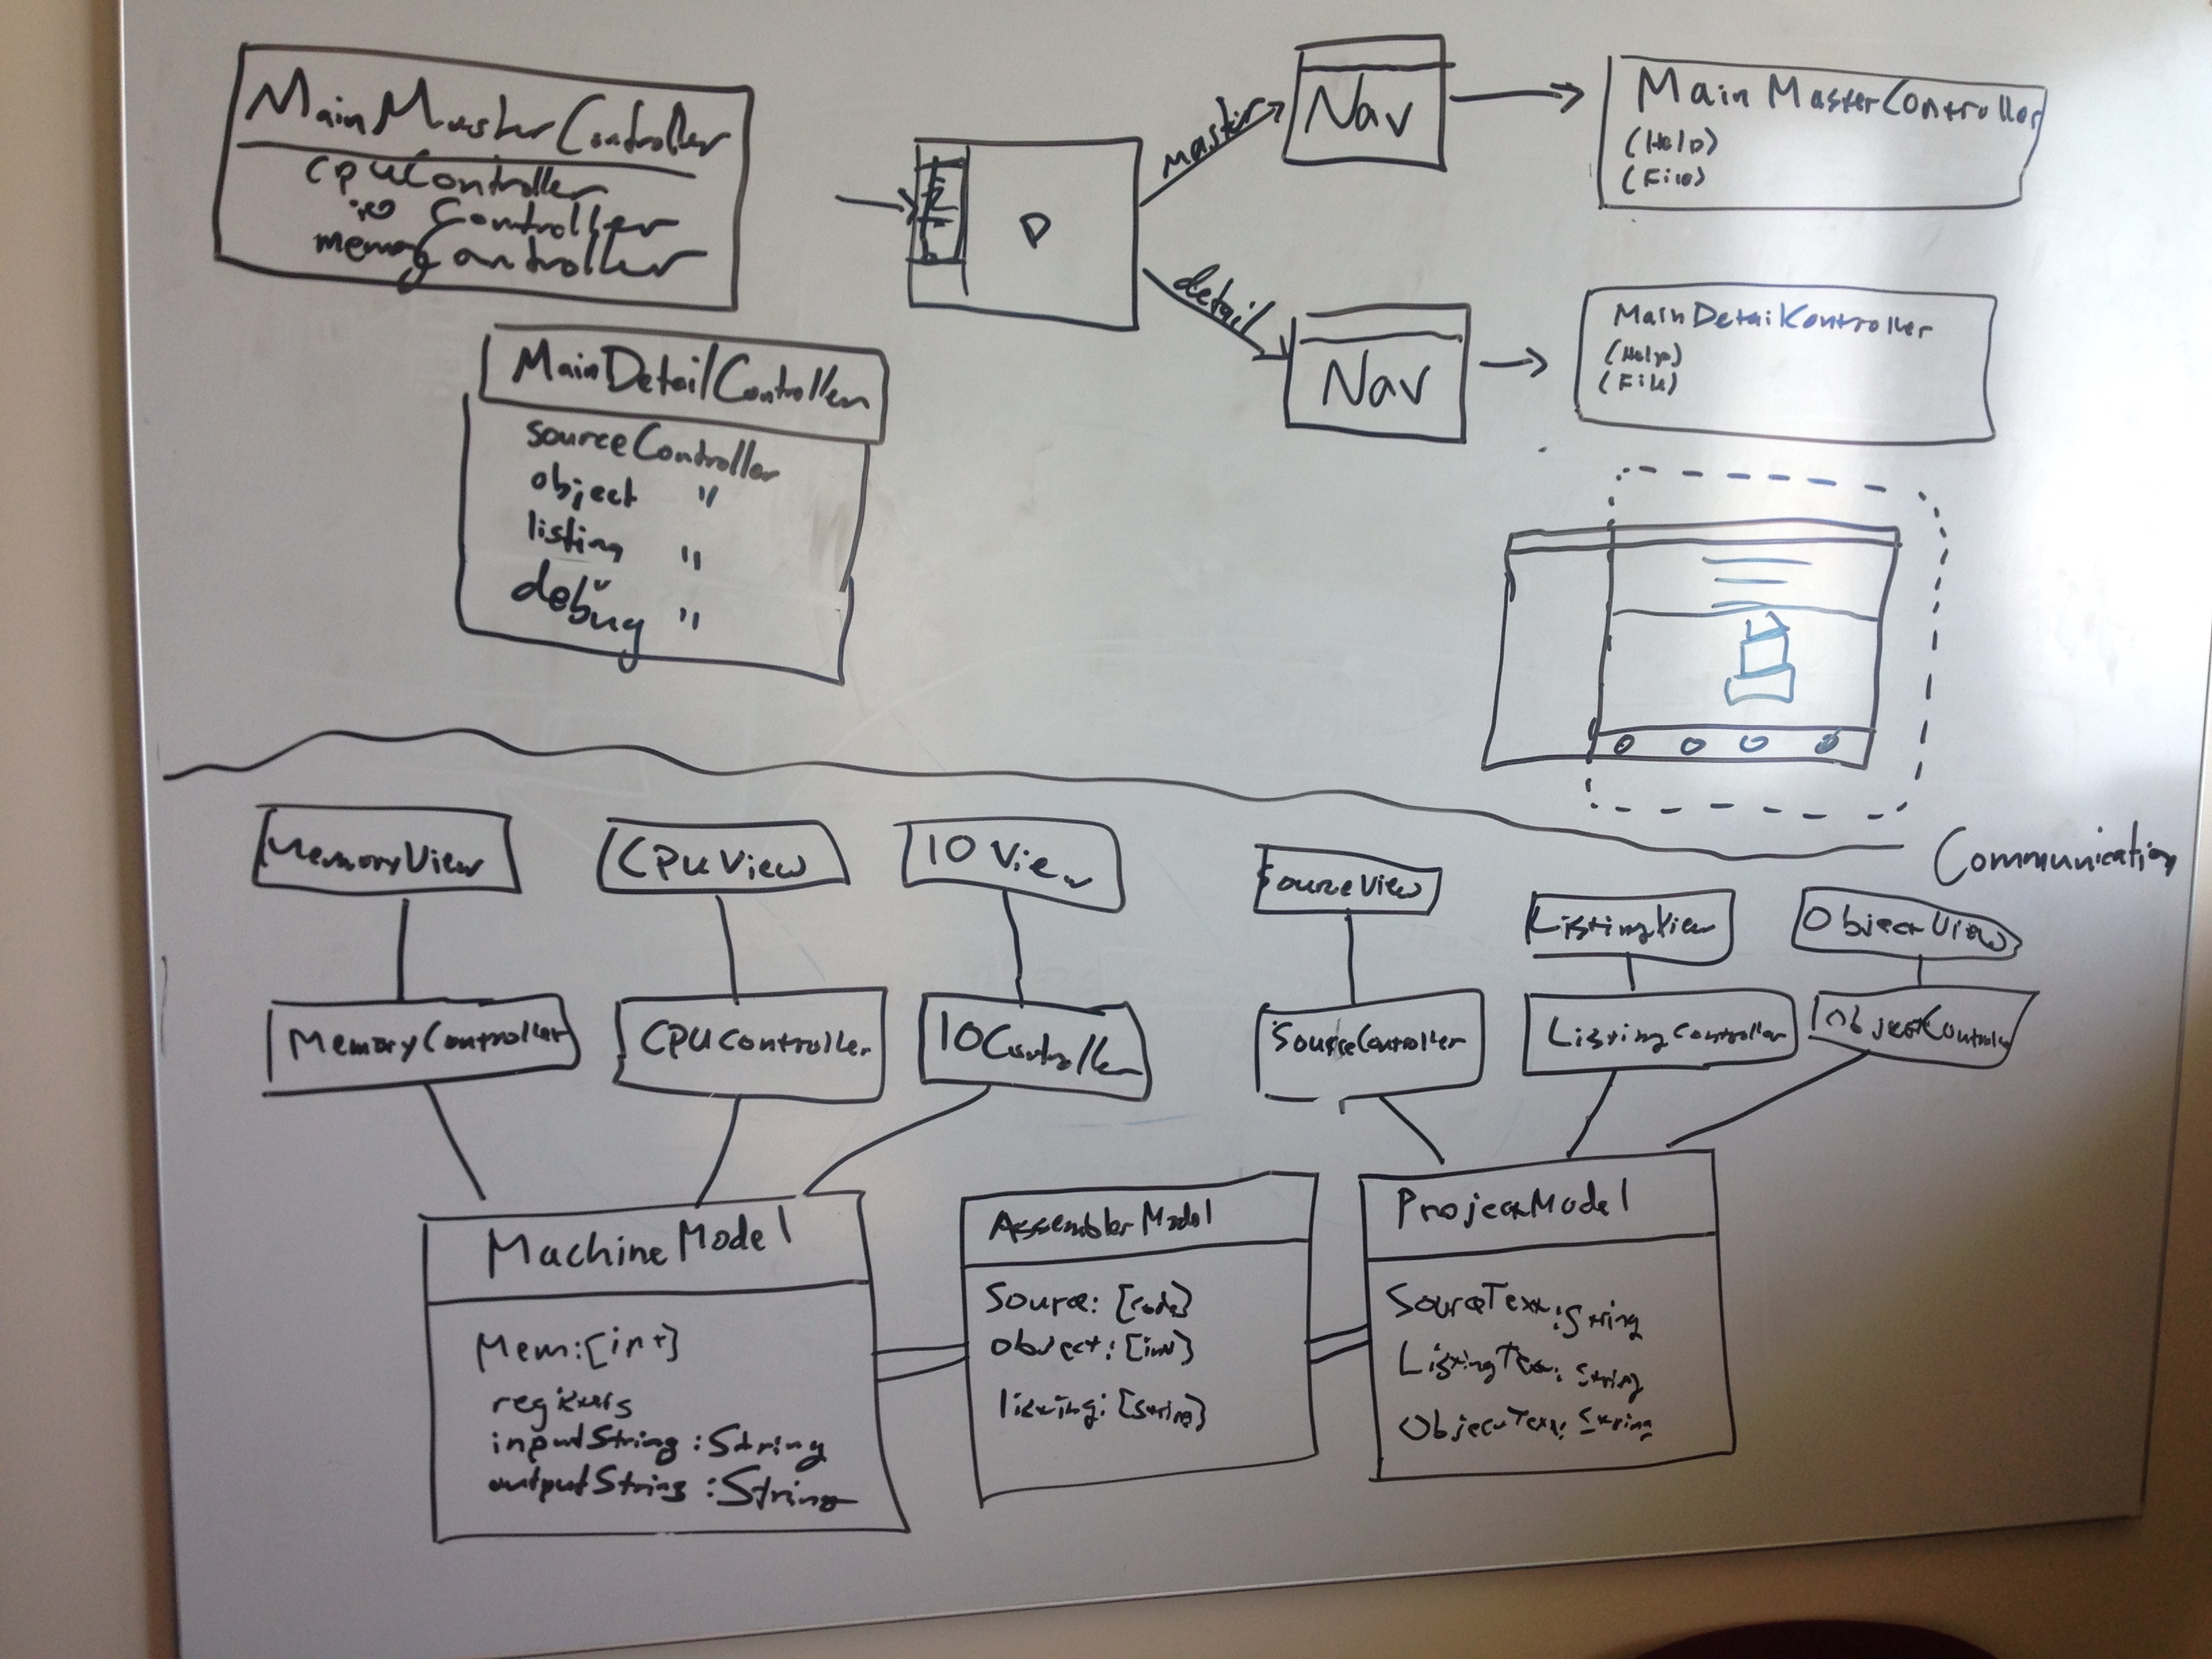 MainMasterController
cpuController
io Controller
memoryController
D
master
detail
Nav
MainMasterController
(Help)
(File)
Nav
MainDetailController
(Help)
(File)
MainDetailController
sourceController
object "
listing "
debug "
Communication
MemoryView
CPUView
IOView
SourceView
ListingView
ObjectView
MemoryController
CPUController
IOController
SourceController
ListingController
ObjectController
MachineModel
Mem:[int]
registers
inputString :String
outputString :String
AssemblerModel
Source: [code]
Object: [int]
listing: [String]
ProjectModel
SourceText:String
ListingText: String
ObjectText: String